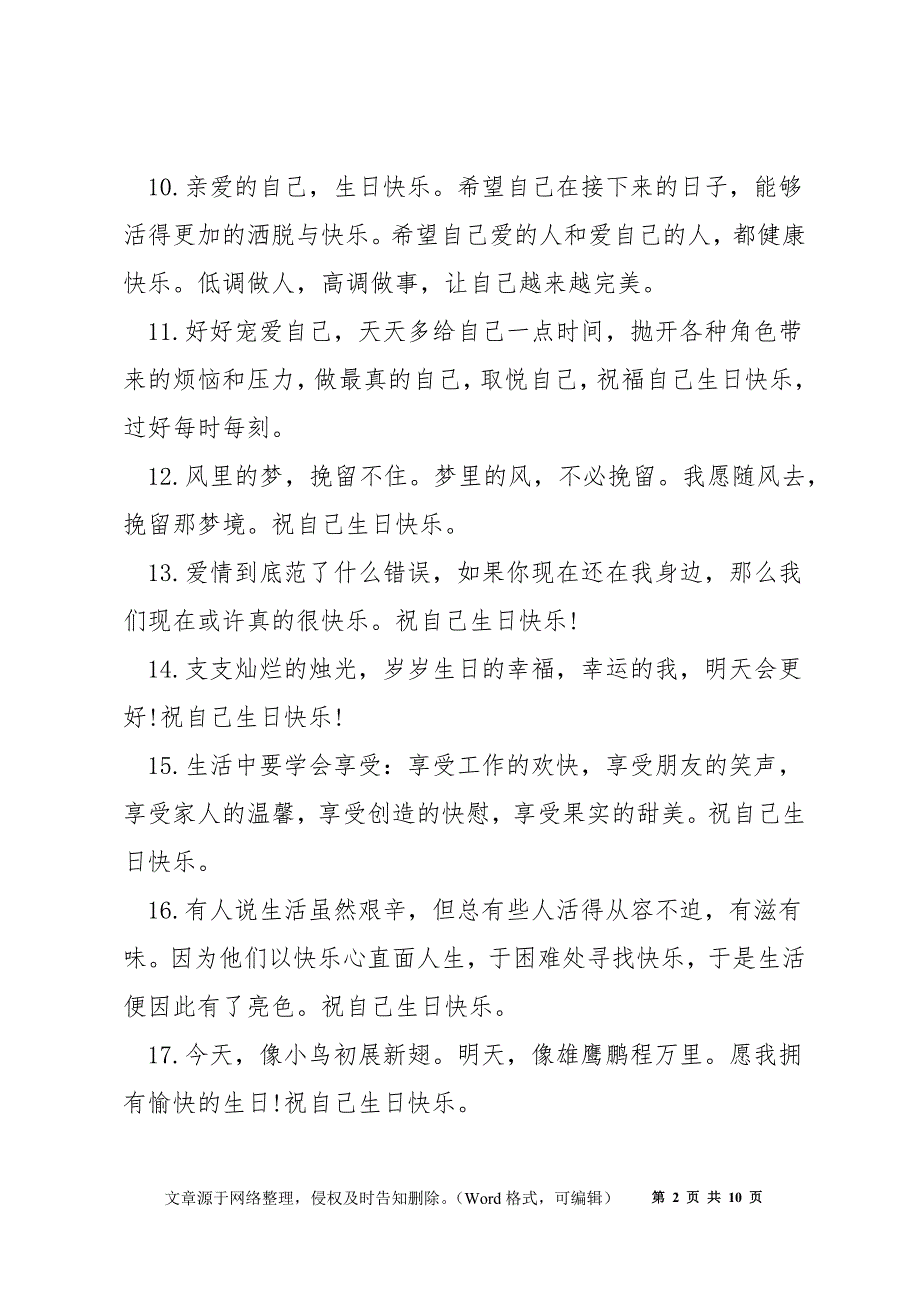 10.亲爱的自己，生日快乐。希望自己在接下来的日子，能够
活得更加的洒脱与快乐。希望自己爱的人和爱自己的人，都健康
快乐。低调做人，高调做事，让自己越来越完美。
11.好好宠爱自己，天天多给自己一点时间，抛开各种角色带
来的烦恼和压力，做最真的自己，取悦自己，祝福自己生日快乐，
过好每时每刻。
12.风里的梦，挽留不住。梦里的风，不必挽留。我愿随风去，
挽留那梦境。祝自己生日快乐。
13.爱情到底范了什么错误，如果你现在还在我身边，那么我
们现在或许真的很快乐。祝自己生日快乐!
14.支支灿烂的烛光，岁岁生日的幸福，幸运的我，明天会更
好!祝自己生日快乐!
15.生活中要学会享受：享受工作的欢快，享受朋友的笑声，
享受家人的温馨，享受创造的快慰，享受果实的甜美。祝自己生
日快乐。
16.有人说生活虽然艰辛，但总有些人活得从容不迫，有滋有
味。因为他们以快乐心直面人生，于困难处寻找快乐，于是生活
便因此有了亮色。祝自己生日快乐。
17.今天，像小鸟初展新翅。明天，像雄鹰鹏程万里。愿我拥
有愉快的生日!祝自己生日快乐。
文章源于网络整理，侵权及时告知删除。（Word 格式，可编辑） 第 2 页 共 10 页